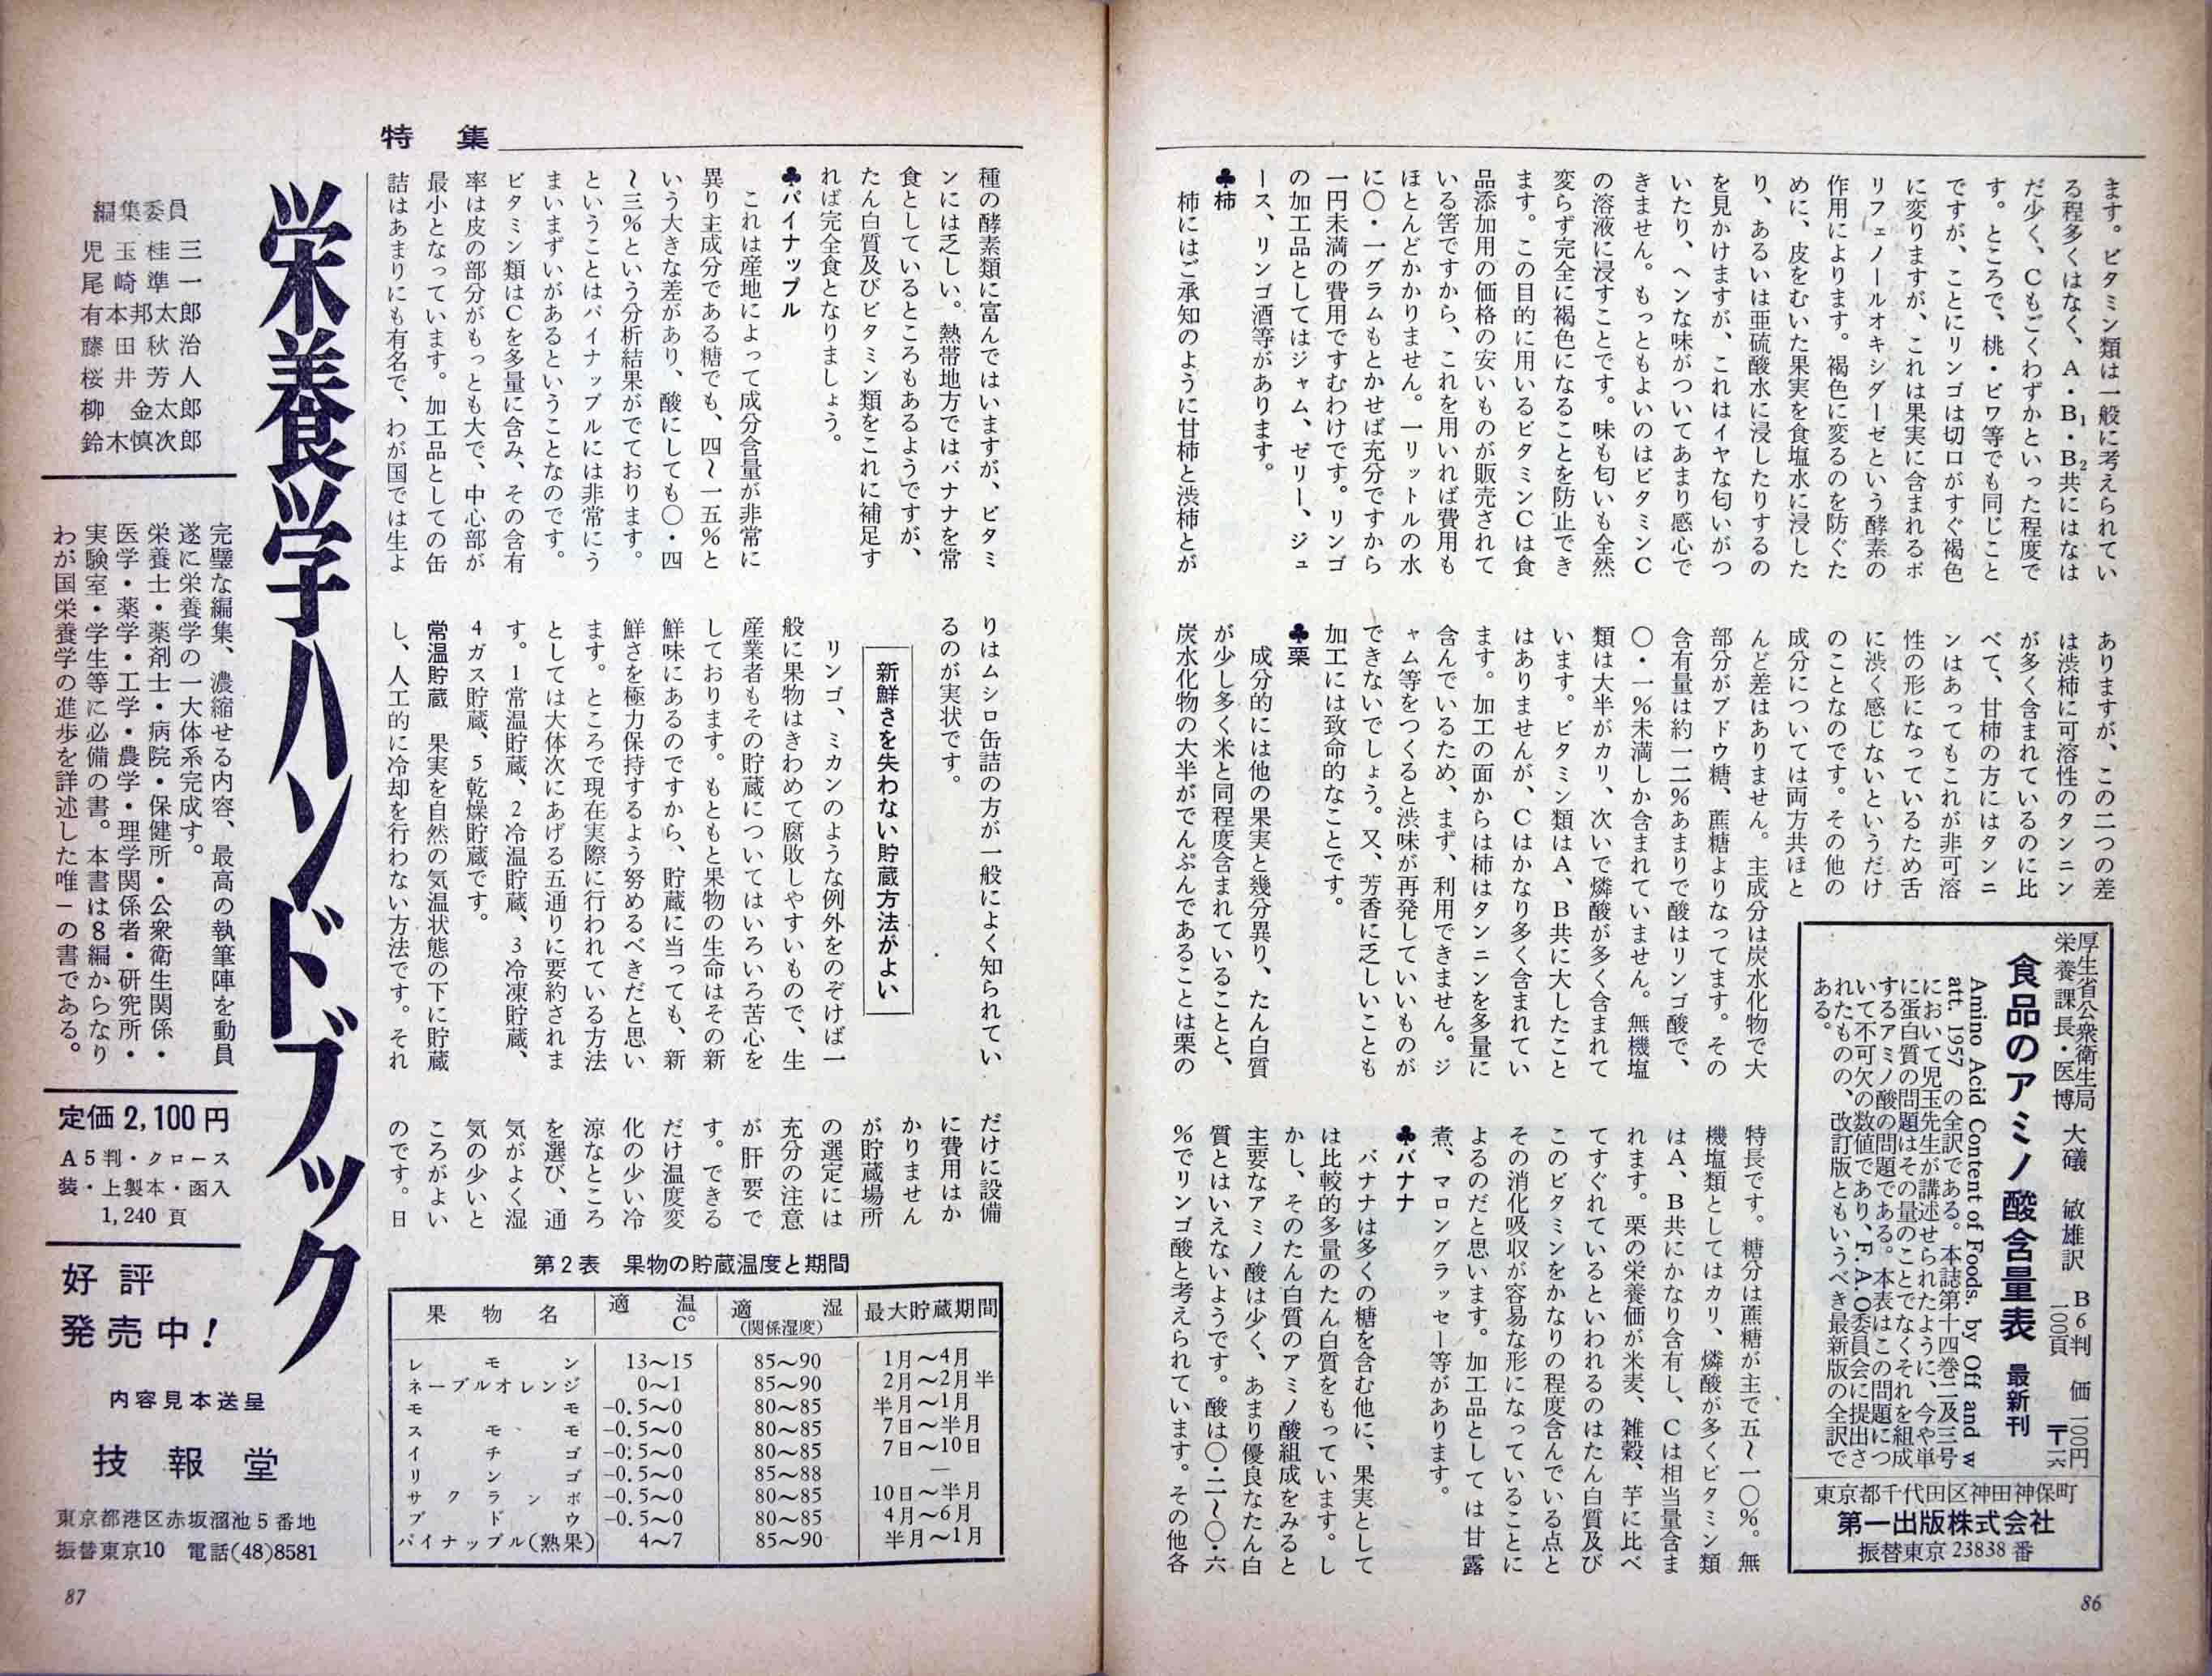 ます。ビタミン類は一般に考えられてい
る程多くはなく、A・B₁・B₂共にはなは
だ少く、Cもごくわずかといった程度で
す。ところで、桃・ビワ等でも同じこと
ですが、ことにリンゴは切口がすぐ褐色
に変りますが、これは果実に含まれるポ
リフェノールオキシダーゼという酵素の
作用によります。褐色に変るのを防ぐた
めに、皮をむいた果実を食塩水に浸した
り、あるいは亜硫酸水に浸したりするの
を見かけますが、これはイヤな匂いがつ
いたり、ヘンな味がついてあまり感心で
きません。もっともよいのはビタミンC
の溶液に浸すことです。味も匂いも全然
変らず完全に褐色になることを防止でき
ます。この目的に用いるビタミンCは食
品添加用の価格の安いものが販売されて
いる筈ですから、これを用いれば費用も
ほとんどかかりません。一リットルの水
に〇・一グラムもとかせば充分ですから
一円未満の費用ですむわけです。リンゴ
の加工品としてはジャム、ゼリー、ジュ
ース、リンゴ酒等があります。
♣柿
柿にはご承知のように甘柿と渋柿とが
ありますが、この二つの差
は渋柿に可溶性のタンニン
が多く含まれているのに比
べて、甘柿の方にはタンニ
ンはあってもこれが非可溶
性の形になっているため舌
に渋く感じないというだけ
のことなのです。その他の
成分については両方共ほと
んど差はありません。主成分は炭水化物で大
部分がブドウ糖、蔗糖よりなってます。その
含有量は約一二%あまりで酸はリンゴ酸で、
〇・一%未満しか含まれていません。無機塩
類は大半がカリ、次いで燐酸が多く含まれて
います。ビタミン類はA、B共に大したこと
はありませんが、Cはかなり多く含まれてい
ます。加工の面からは柿はタンニンを多量に
含んでいるため、まず、利用できません。ジ
ャム等をつくると渋味が再発していいものが
できないでしょう。又、芳香に乏しいことも
加工には致命的なことです。
♣栗
成分的には他の果実と幾分異り、たん白質
が少し多く米と同程度含まれていることと、
炭水化物の大半がでんぷんであることは栗の
特長です。糖分は蔗糖が主で五〜一〇%。無
機塩類としてはカリ、燐酸が多くビタミン類
はA、B共にかなり含有し、Cは相当量含ま
れます。栗の栄養価が米麦、雑穀、芋に比べ
てすぐれているといわれるのはたん白質及び
このビタミンをかなりの程度含んでいる点と
その消化吸収が容易な形になっていることに
よるのだと思います。加工品としては甘露
煮、マロングラッセー等があります。
♣バナナ
バナナは多くの糖を含む他に、果実として
は比較的多量のたん白質をもっています。し
かし、そのたん白質のアミノ酸組成をみると
主要なアミノ酸は少く、あまり優良なたん白
質とはいえないようです。酸は〇・二〜〇・六
%でリンゴ酸と考えられています。その他各
厚生省公衆衛生局
栄養課長・医博 大礒 敏雄訳 B6判 100頁 価 100円 〒一六
食品のアミノ酸含量表 最新刊
Amino Acid Content of Foods. by Off and w
att. 1957 の全訳である。本誌第十四巻二及三号
において児玉先生が講述せられたように、今や単
に蛋白質の問題はその量のことでなくそれを組成
するアミノ酸の問題である。本表はこの問題につ
いて不可欠の数値であり、F.A.O委員会に提出さ
れたものの、改訂版ともいうべき最新版の全訳で
ある。
東京都千代田区神田神保町
第一出版株式会社
振替東京 23838 番
86
特集
種の酵素類に富んではいますが、ビタミ
ンには乏しい。熱帯地方ではバナナを常
食としているところもあるようですが、
たん白質及びビタミン類をこれに補足す
れば完全食となりましょう。
♣パイナップル
これは産地によって成分含量が非常に
異り主成分である糖でも、四〜一五%と
いう大きな差があり、酸にしても〇・四
〜三%という分析結果がでております。
ということはパイナップルには非常にう
まいまずいがあるということなのです。
ビタミン類はCを多量に含み、その含有
率は皮の部分がもっとも大で、中心部が
最小となっています。加工品としての缶
詰はあまりにも有名で、わが国では生よ
りはムシロ缶詰の方が一般によく知られてい
るのが実状です。
新鮮さを失わない貯蔵方法がよい
リンゴ、ミカンのような例外をのぞけば一
般に果物はきわめて腐敗しやすいもので、生
産業者もその貯蔵についてはいろいろ苦心を
しております。もともと果物の生命はその新
鮮味にあるのですから、貯蔵に当っても、新
鮮さを極力保持するよう努めるべきだと思い
ます。ところで現在実際に行われている方法
としては大体次にあげる五通りに要約されま
す。1常温貯蔵、2冷温貯蔵、3冷凍貯蔵、
4ガス貯蔵、5乾燥貯蔵です。
常温貯蔵 果実を自然の気温状態の下に貯蔵
し、人工的に冷却を行わない方法です。それ
だけに設備
に費用はか
かりません
が貯蔵場所
の選定には
充分の注意
が肝要で
す。できる
だけ温度変
化の少い冷
涼なところ
を選び、通
気がよく湿
気の少いと
ころがよい
のです。日
第2表 果物の貯蔵温度と期間
果物名 適温C° 適湿(関係湿度) 最大貯蔵期間
レモン 13〜15 85〜90 1月〜4月
ネーブルオレンジ 0〜1 85〜90 2月〜2月半
モモ -0.5〜0 80〜85 半月〜1月
スモモ -0.5〜0 80〜85 7日〜半月
イチゴ -0.5〜0 80〜85 7日〜10日
リンゴ -0.5〜0 85〜88 —
サクランボ -0.5〜0 80〜85 10日〜半月
ブドウ -0.5〜0 80〜85 4月〜6月
パイナップル(熟果) 4〜7 85〜90 半月〜1月
栄養学ハンドブック
編集委員
児玉桂三
尾崎準一
有本邦太郎
藤田秋治
桜井芳人
柳金太郎
鈴木慎次郎
完璧な編集、濃縮せる内容、最高の執筆陣を動員
遂に栄養学の一大体系完成す。
栄養士・薬剤士・病院・保健所・公衆衛生関係・
医学・薬学・工学・農学・理学関係者・研究所・
実験室・学生等に必備の書。本書は8編からなり
わが国栄養学の進歩を詳述した唯一の書である。
定価 2,100 円
A5判・クロース
装・上製本・函入
1,240 頁
好評
発売中!
内容見本送呈
技報堂
東京都港区赤坂溜池5番地
振替東京10 電話(48)8581
87